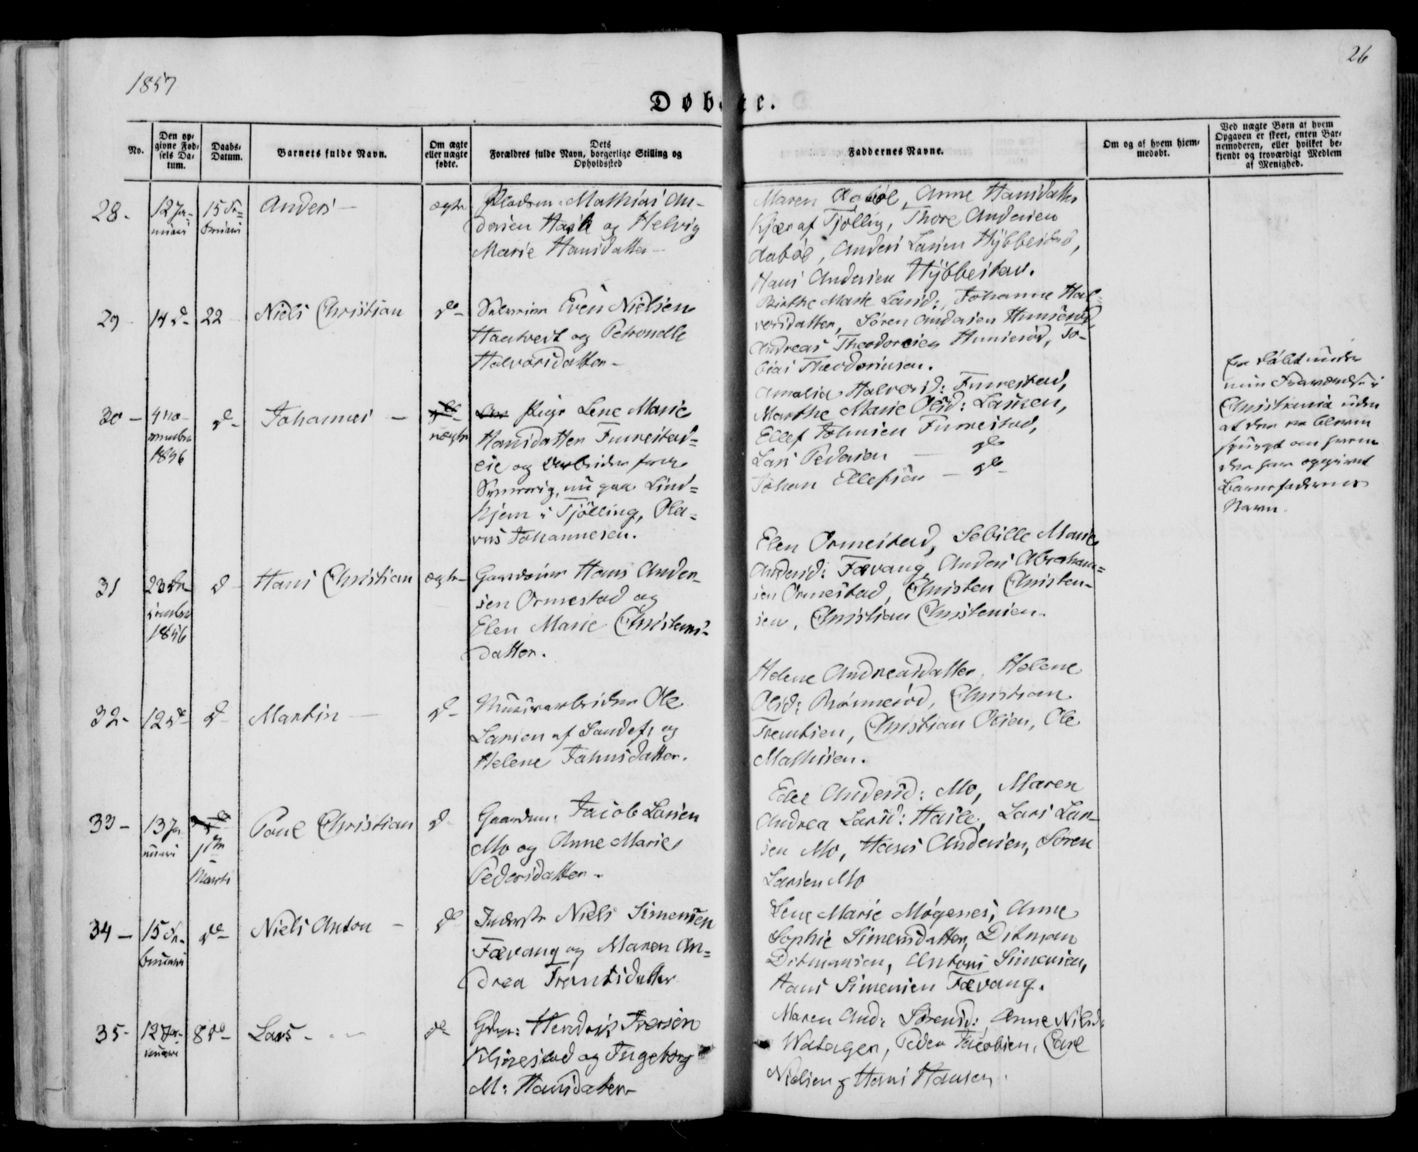 1857
26
Døbte.
No.
Den op-
givne Fød-
sels Da-
tum.
Daabs-
Datum.
Barnets fulde Navn.
Om ægte
eller uægte
fødte.
Dets
Forældres fulde Navn, borgerlige Stilling og
Opholdssted
Faddernes Navne.
Om og af hvem hjem-
medøbt.
Ved uægte Børn af hvem
Opgaven er skeet, enten Bar-
nemoderen, eller hvilket be-
kjendt og troværdigt Medlem
af Menighed.
28-
12 Ja-
nuari
15 Fe-
bruari
Anders -
ægte
Pladsm: Mathias An-
dersen Hasle og Helvig
Marie Hansdatter -
Maren Aabøl, Anne Hansdatter
Kjær af Tjølling, Thore Andersen
Aabøl, Anders Larsen Hybbestad,
Hans Andersen Hybbestad.
29-
14 d-
22
Niels Christian
do-
Even Nielsen
Haatveit og Petronelle
Halvorsdatter -
Birthe Marie Larsd: Johanne Hal-
vorsdatter, Søren Andersen Hunserød,
Andreas Theodorsen Hunserød, To-
bias Theodorsen.
30 -
4 No-
vember
1856
d-
Johannes -
uægte
Pige Lene Marie
Hansdatter Furrestad-
eie og
nu paa Lind-
hjem i Tjølling, Ola-
vus Johannesen.
Amalia Halvorsd: Furrestad,
Marthe Marie Olsd: Lauisen,
Ellef Johnsen Furrestad,
Lars Pedersen - do
Johan Ellefsen - do
min Fraværelse i
Christiania uden
at der er bleven
spurgt om hvem
der har opgivet
Barnefaderens
Navn.
31
23 De-
cember
1856
d-
Hans Christian
ægte-
Gaardmm Hans Ander-
sen Ormestad og
Elen Marie Christens-
datter.
Elen Ormestad, Sebille Marie
Andersd: Fævang, Anders Abraham-
sen Ormestad, Christen Christen-
sen, Christian Christensen.
32-
12 d-
d-
Martin -
d-
Ole
Larsen af Sandefj. og
Helene Jahnsdatter.
Helene Andreasdatter, Helene
Olsd: Rønnerød, Christian
Frentsen, Christian Olsen, Ole
Mathisen.
33-
13 Ja-
nuari
1ste
Marts
Poul Christian
d-
Gaardm: Jacob Larsen
Mo og Anne Marie
Pedersdatter -
Edel Andersd: Mo, Maren
Andrea Larsd: Hasle, Lars Lar-
sen Mo, Hans Andersen, Søren
Larsen Mo
34-
15 Fe-
bruari
do-
Niels Anton -
do
Inderste Niels Simensen
Fævang og Maren An-
drea Frentsdatter
Lene Marie Mogenes, Anne
Sophie Simensdatter, Ditman
Ditmansen, Antoni Simensen,
Hans Simensen Fævang.
35-
12 Ja-
nuari
8 do
Lars -
do
Gdm: Hendrik Iversen
Klinestad og Ingeborg
M: Hansdatter
Maren And: Sørensd: Anne Nilsd:
Peder Jacobsen, Carl
Nielsen og Hans Hansen